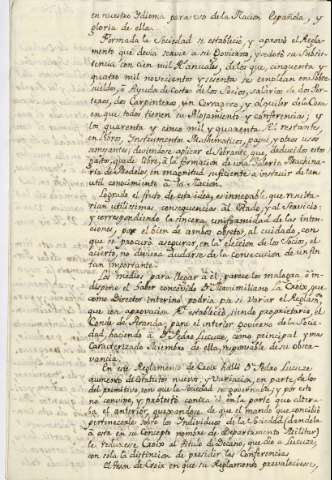 en nuestro Idioma para uso de la Nacion Española, y
gloria de ella.
Formada la Sociedad se estableció y aprovó el Regla-
mento que devia servir a su Govierno, y se dotó su Subsis-
tencia con cien mil R.^s annuales, de los que, cinquenta y
quatro mil novecientos y sesenta se empleban en
sueldos, o Ayuda de Costa de los Socios, salarios de dos Por-
teros, dos Carpinteros, un Cerragero, y alquiler de la Casa
en que todos tienen su Alojamiento y conferencias; y
los quarenta y cinco mil y quarenta R.^s restantes,
en libros, Instrumentos Mathematicos, papel y otros usos
semejantes; deviendo aplicar el sobrante, que deducidos estos
gastos, quede libre, à la formacion de una Galeria Machina-
ria de Modelos en magnitud suficiente a instruir de tan
util conocimiento à la Nacion.
Logrado el fruto de esta idea, es innegable, que resulta-
rian utilissimas consequencias al Estado, y al Servicio:
y correspondiendo la sincera uniformidad de las inten-
ciones, por el bien de ambos objetos, al cuidado, con
que se procuró asegurar, en la eleccion de los Socios, el
acierto, no deviera dudarse de la consecucion de un fin
tan importante.
Los medios para llegar à él, parece los malogra ò in-
dispone el haver concevido D.^n Maximiliano La Croix, que
como Director interino podria por si variar el Reglam.^to
que con aprovacion R.^l estableció, siendo propietario, el
Conde de Aranda, para el interior govierno de la Socie-
dad, haciendo à D.^n Pedro Lucuze, como principal y mas
caracterizado Miembro de ella, responsable de su obser-
vancia.
En este Reglamento de Croix halló D.^n Pedro Lucuze
aumento de Statutos nuevos, y variacion, en parte, de los
del primitivo con que la Sociedad se governaba; y por esto
no convino, y protestó contra él en la parte que altera-
ba el anterior, quexandose de que el mando que concibió
pertenecerle sobre los Individuos de la Sociedad (dandola
à esta en su Concepto nombre de Departamento Militar)
le reduxese Croix al titulo de Decano, que dio à Lucuze,
con sola la distincion de presidir las Conferencias.
El fin de Croix en que su Reglamento prevaleciese,